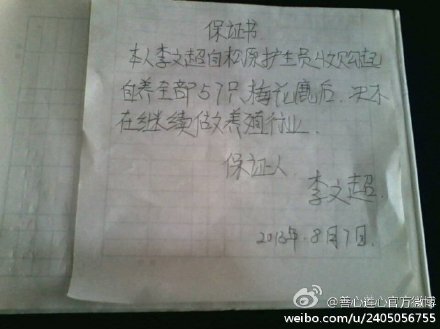 保证书
本人李文超自松原护生员收购
自养全部57只梅花鹿后,决不
在继续做养殖行业.
保证人.
李文超.
2013年.8月7日.
@善心莲心官方微博
weibo.com/u/2405056755